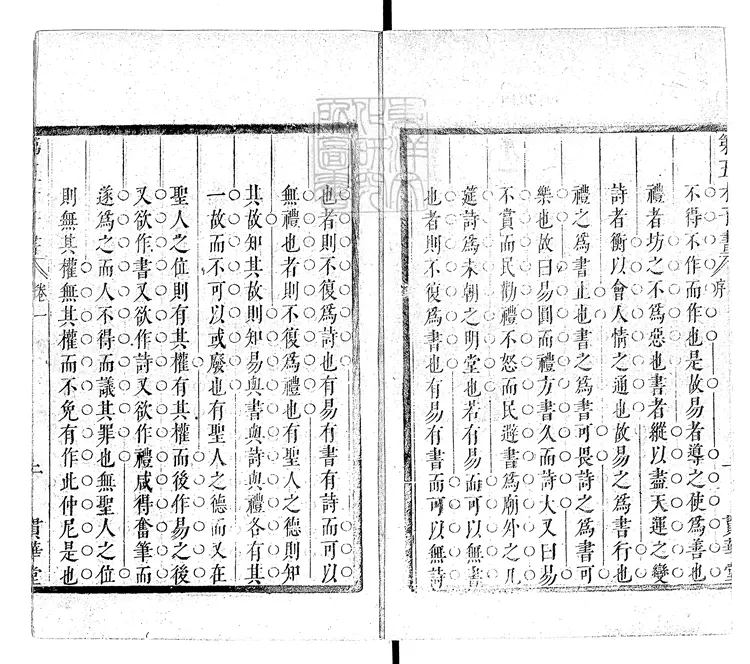 第五才子書 序 一 貫華堂
不得不作而作也是故易者導之使為善也
禮者坊之不為惡也書者縱以盡天運之變
詩者衡以會人情之通也故易之為書行也
禮之為書止也書之為書可畏詩之為書可
樂也故曰易圓而禮方書久而詩大又曰易
不賞而民勸禮不怒而民避書為廟外之几
筵詩為未朝之明堂也若有易而可以無書
也者則不復為書也有易有書而可以無詩
也者則不復為詩也有易有書有詩而可以
無禮也者則不復為禮也有聖人之德則知
其故知其故則知易與書與詩與禮各有其
一故而不可以或廢也有聖人之德而又在
聖人之位則有其權有其權而後作易之後
又欲作書又欲作詩又欲作禮咸得奮筆而
遂為之而人不得而議其罪也無聖人之位
則無其權無其權而不免有作此仲尼是也
卷一 貫華堂